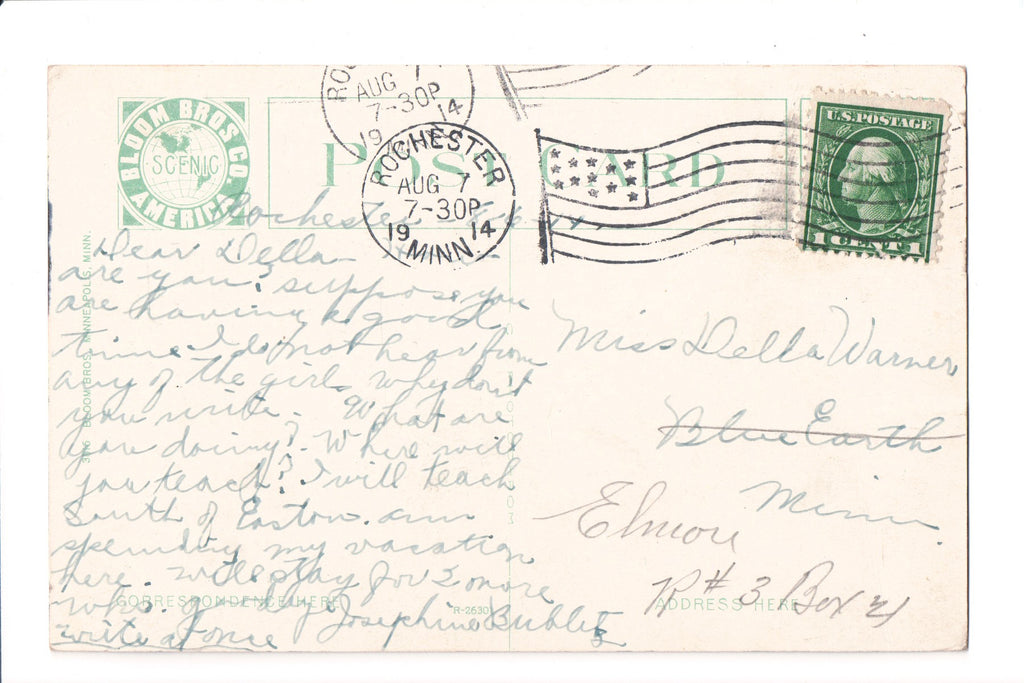 ROC
AUG 7
7-30P
19 14
BLOOM BROS CO
SCENIC
AMERICA
POST CARD
ROCHESTER
AUG 7
7-30P
19 14
MINN.
U.S. POSTAGE
1 CENT 1
Rochester
Dear Della-
are you? suppose you
are having a good
time. I do not hear from
any of the girls why don't
you write. What are
you doing? Where will
you teach? I will teach
South of Easton. am
spending my vacation
here. will stay for 2 more
wks.
Josephine
write at once
Miss Della Warner
Blue Earth
Minn.
Elmore
R # 3 Box
CORRESPONDENCE HERE
R-2630
ADDRESS HERE
BLOOM BROS. MINNEAPOLIS, MINN.